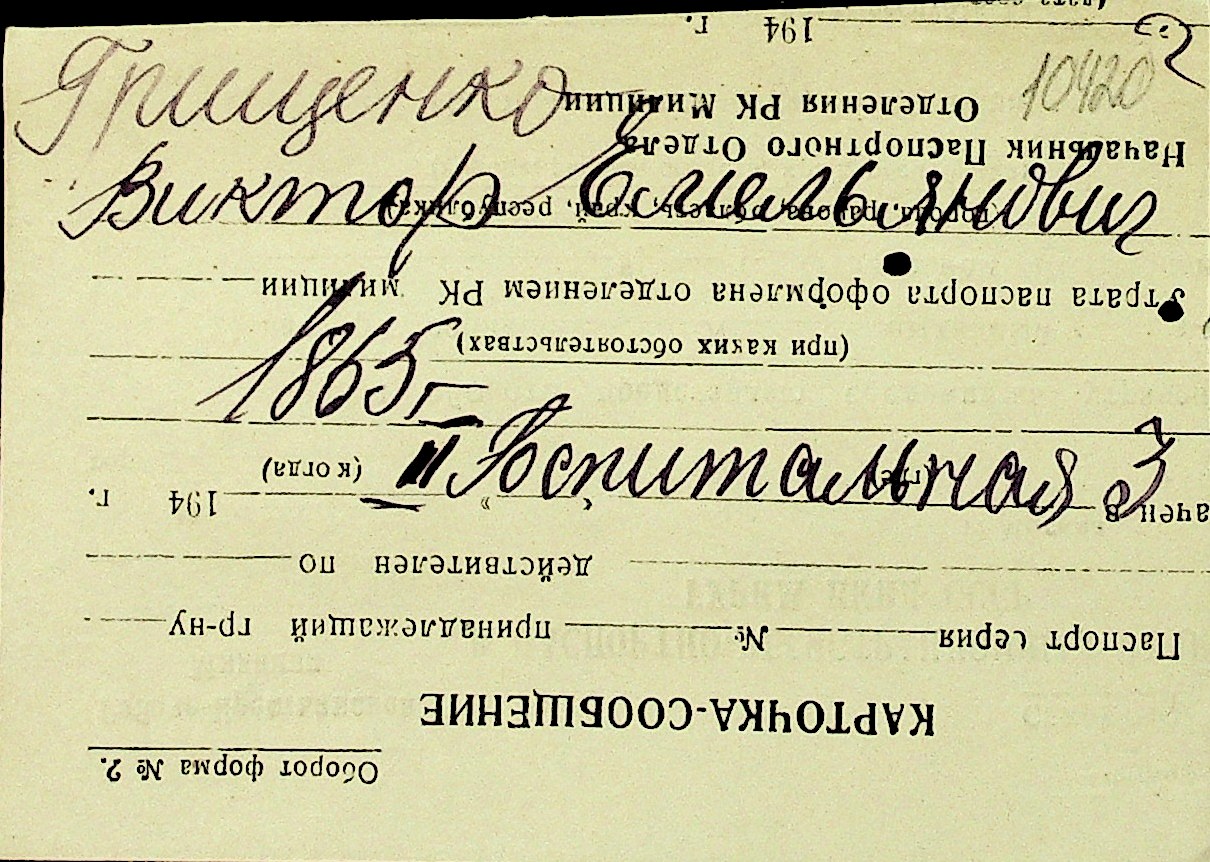 Грищенко
10420
Виктор Емельянович
1865 г
II Госпитальная 3
Оборот форма № 2.
КАРТОЧКА-СООБЩЕНИЕ
Паспорт серия № принадлежащий гр-ну
действителен по
ачен в (где) " " (когда) 194 г.
(при каких обстоятельствах)
Утрата паспорта оформлена отделением РК милиции
(города, района, область, край, республика)
Начальник Паспортного Отдела
Отделения РК Милиции
194 г.